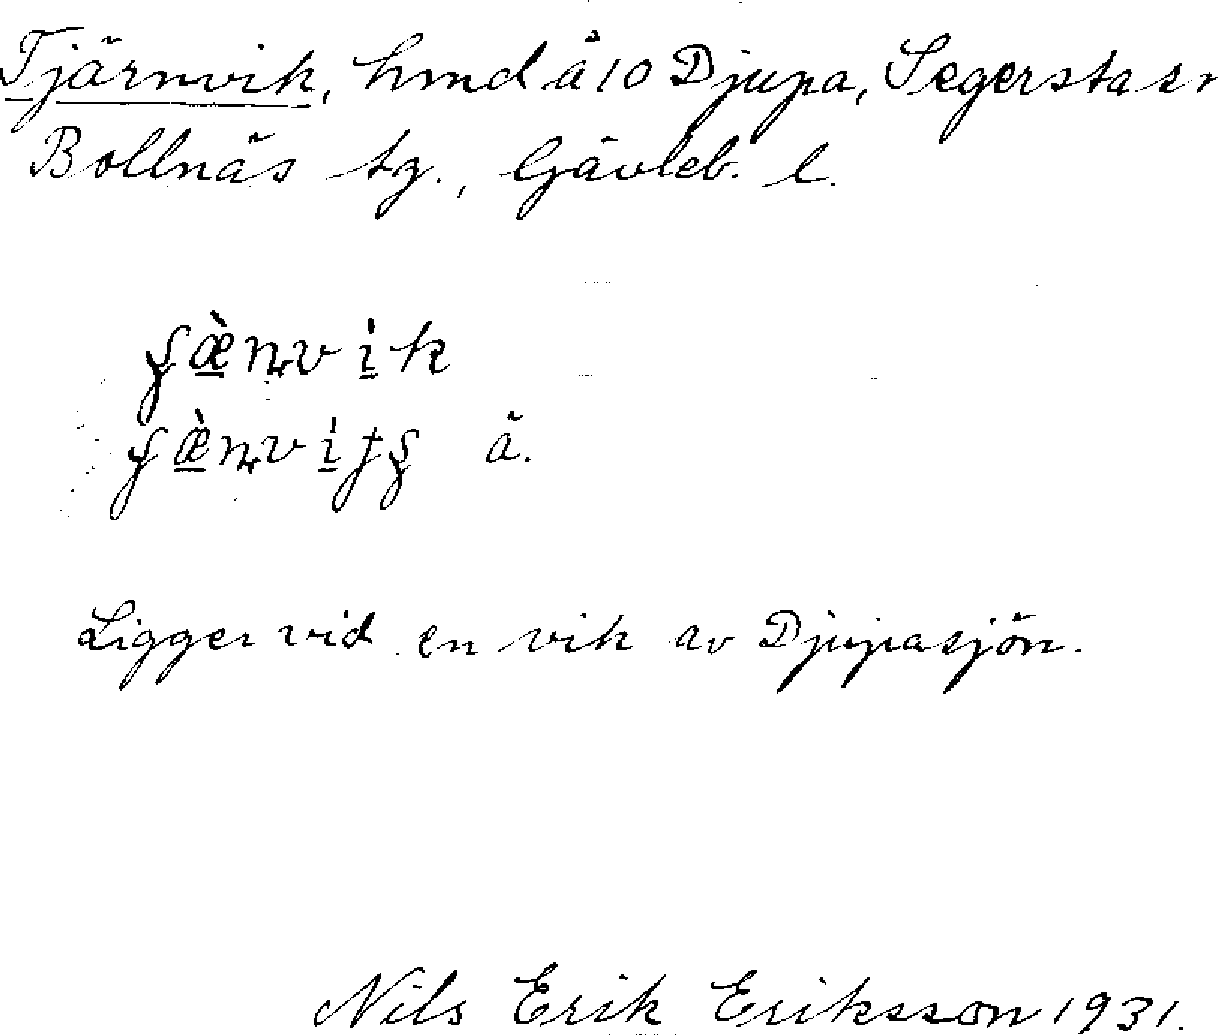 Tjärnvik, hmd å 10 Djupa, Segersta sn
Bollnäs tg., Gävleb. l.
å.
Ligger vid en vik av Djupasjön.
Nils Erik Eriksson 1931.